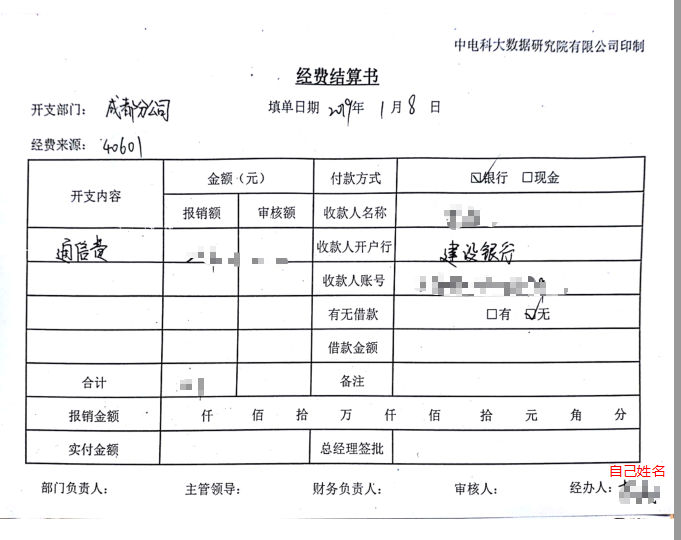 中电科大数据研究院有限公司印制
经费结算书
开支部门： 成都分公司 填单日期 2019年 1月8日
经费来源： 40601
开支内容 金额（元） 付款方式 ☑银行 □现金
报销额 审核额 收款人名称
通信费 收款人开户行 建设银行
收款人账号
有无借款 □有 ☑无
借款金额
合计 备注
报销金额 仟 佰 拾 万 仟 佰 拾 元 角 分
实付金额 总经理签批
自己姓名
部门负责人： 主管领导： 财务负责人： 审核人： 经办人：